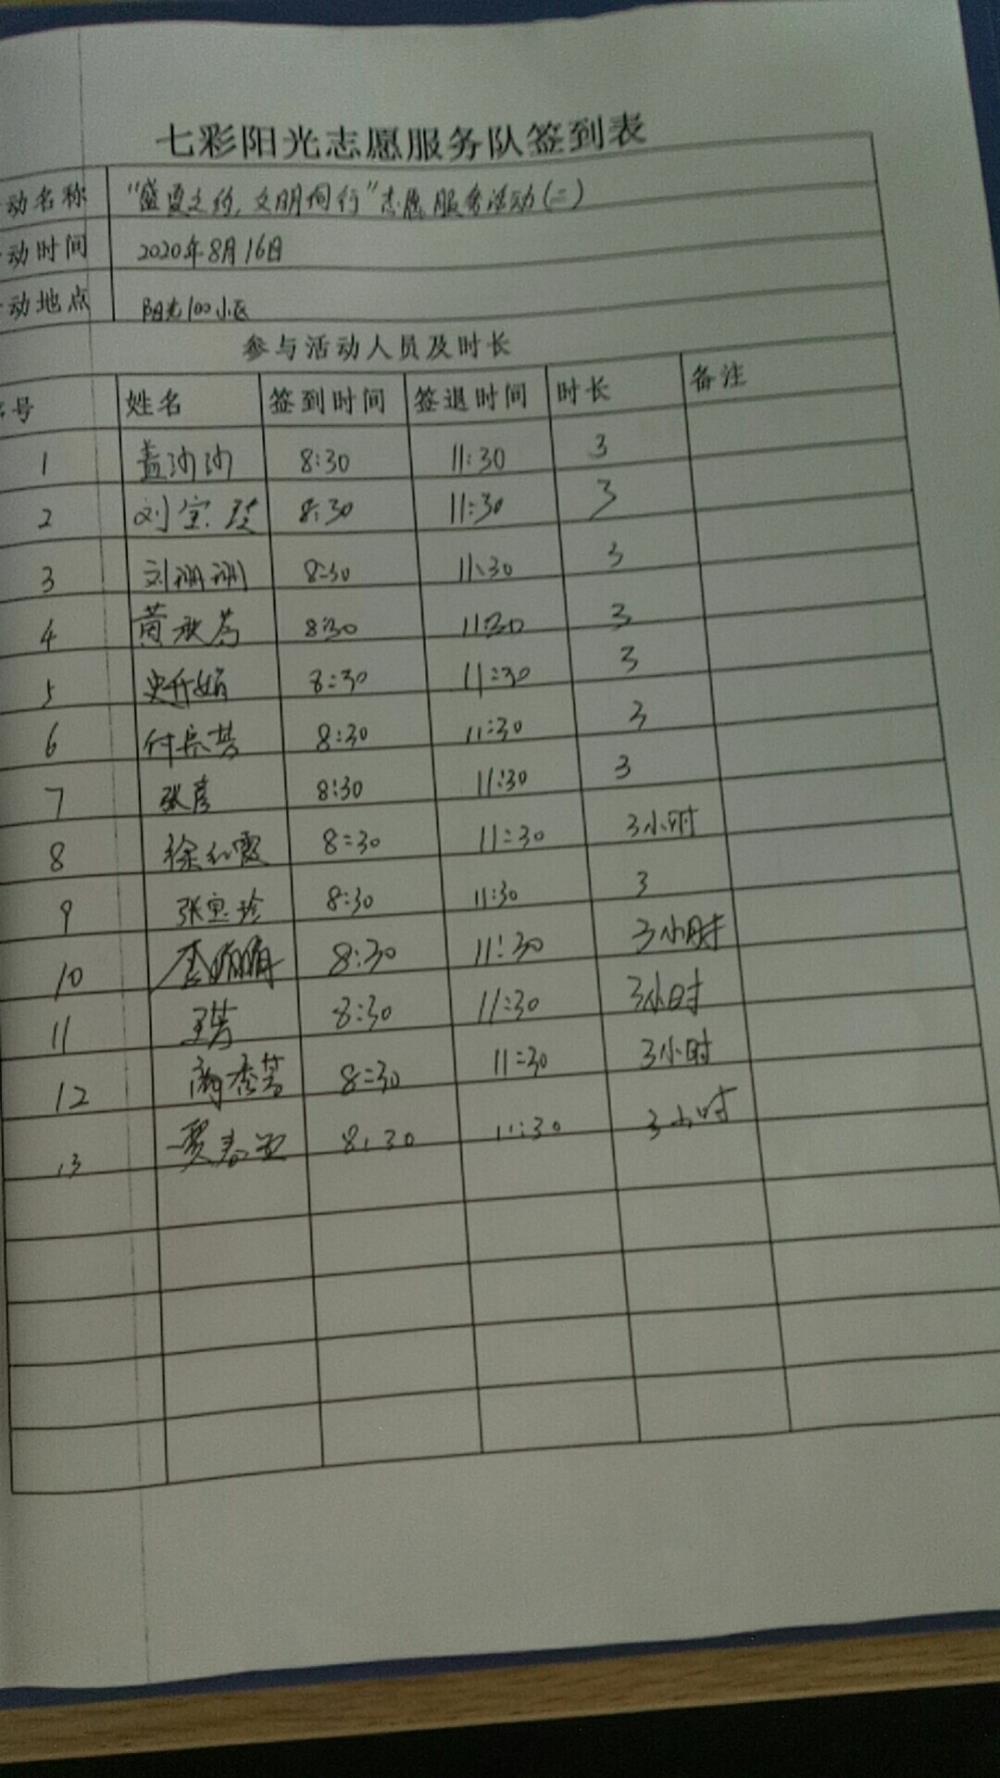 七彩阳光志愿服务队签到表
动名称 "盛夏之约,文明同行"志愿服务活动(二)
动时间 2020年8月16日
动地点 阳光100小区
参与活动人员及时长
号 姓名 签到时间 签退时间 时长 备注
1 孟沙沙 8:30 11:30 3
2 刘宝玲 8:30 11:30 3
3 刘珊珊 8:30 11:30 3
4 黄秋芬 8:30 11:30 3
5 史仟娟 8:30 11:30 3
6 付长芸 8:30 11:30 3
7 张彦 8:30 11:30 3
8 徐红霞 8:30 11:30 3小时
9 张宝珍 8:30 11:30 3
10 8:30 11:30 3小时
11 王芳 8:30 11:30 3小时
12 8:30 11:30 3小时
13 贾春亚 8:30 11:30 3小时